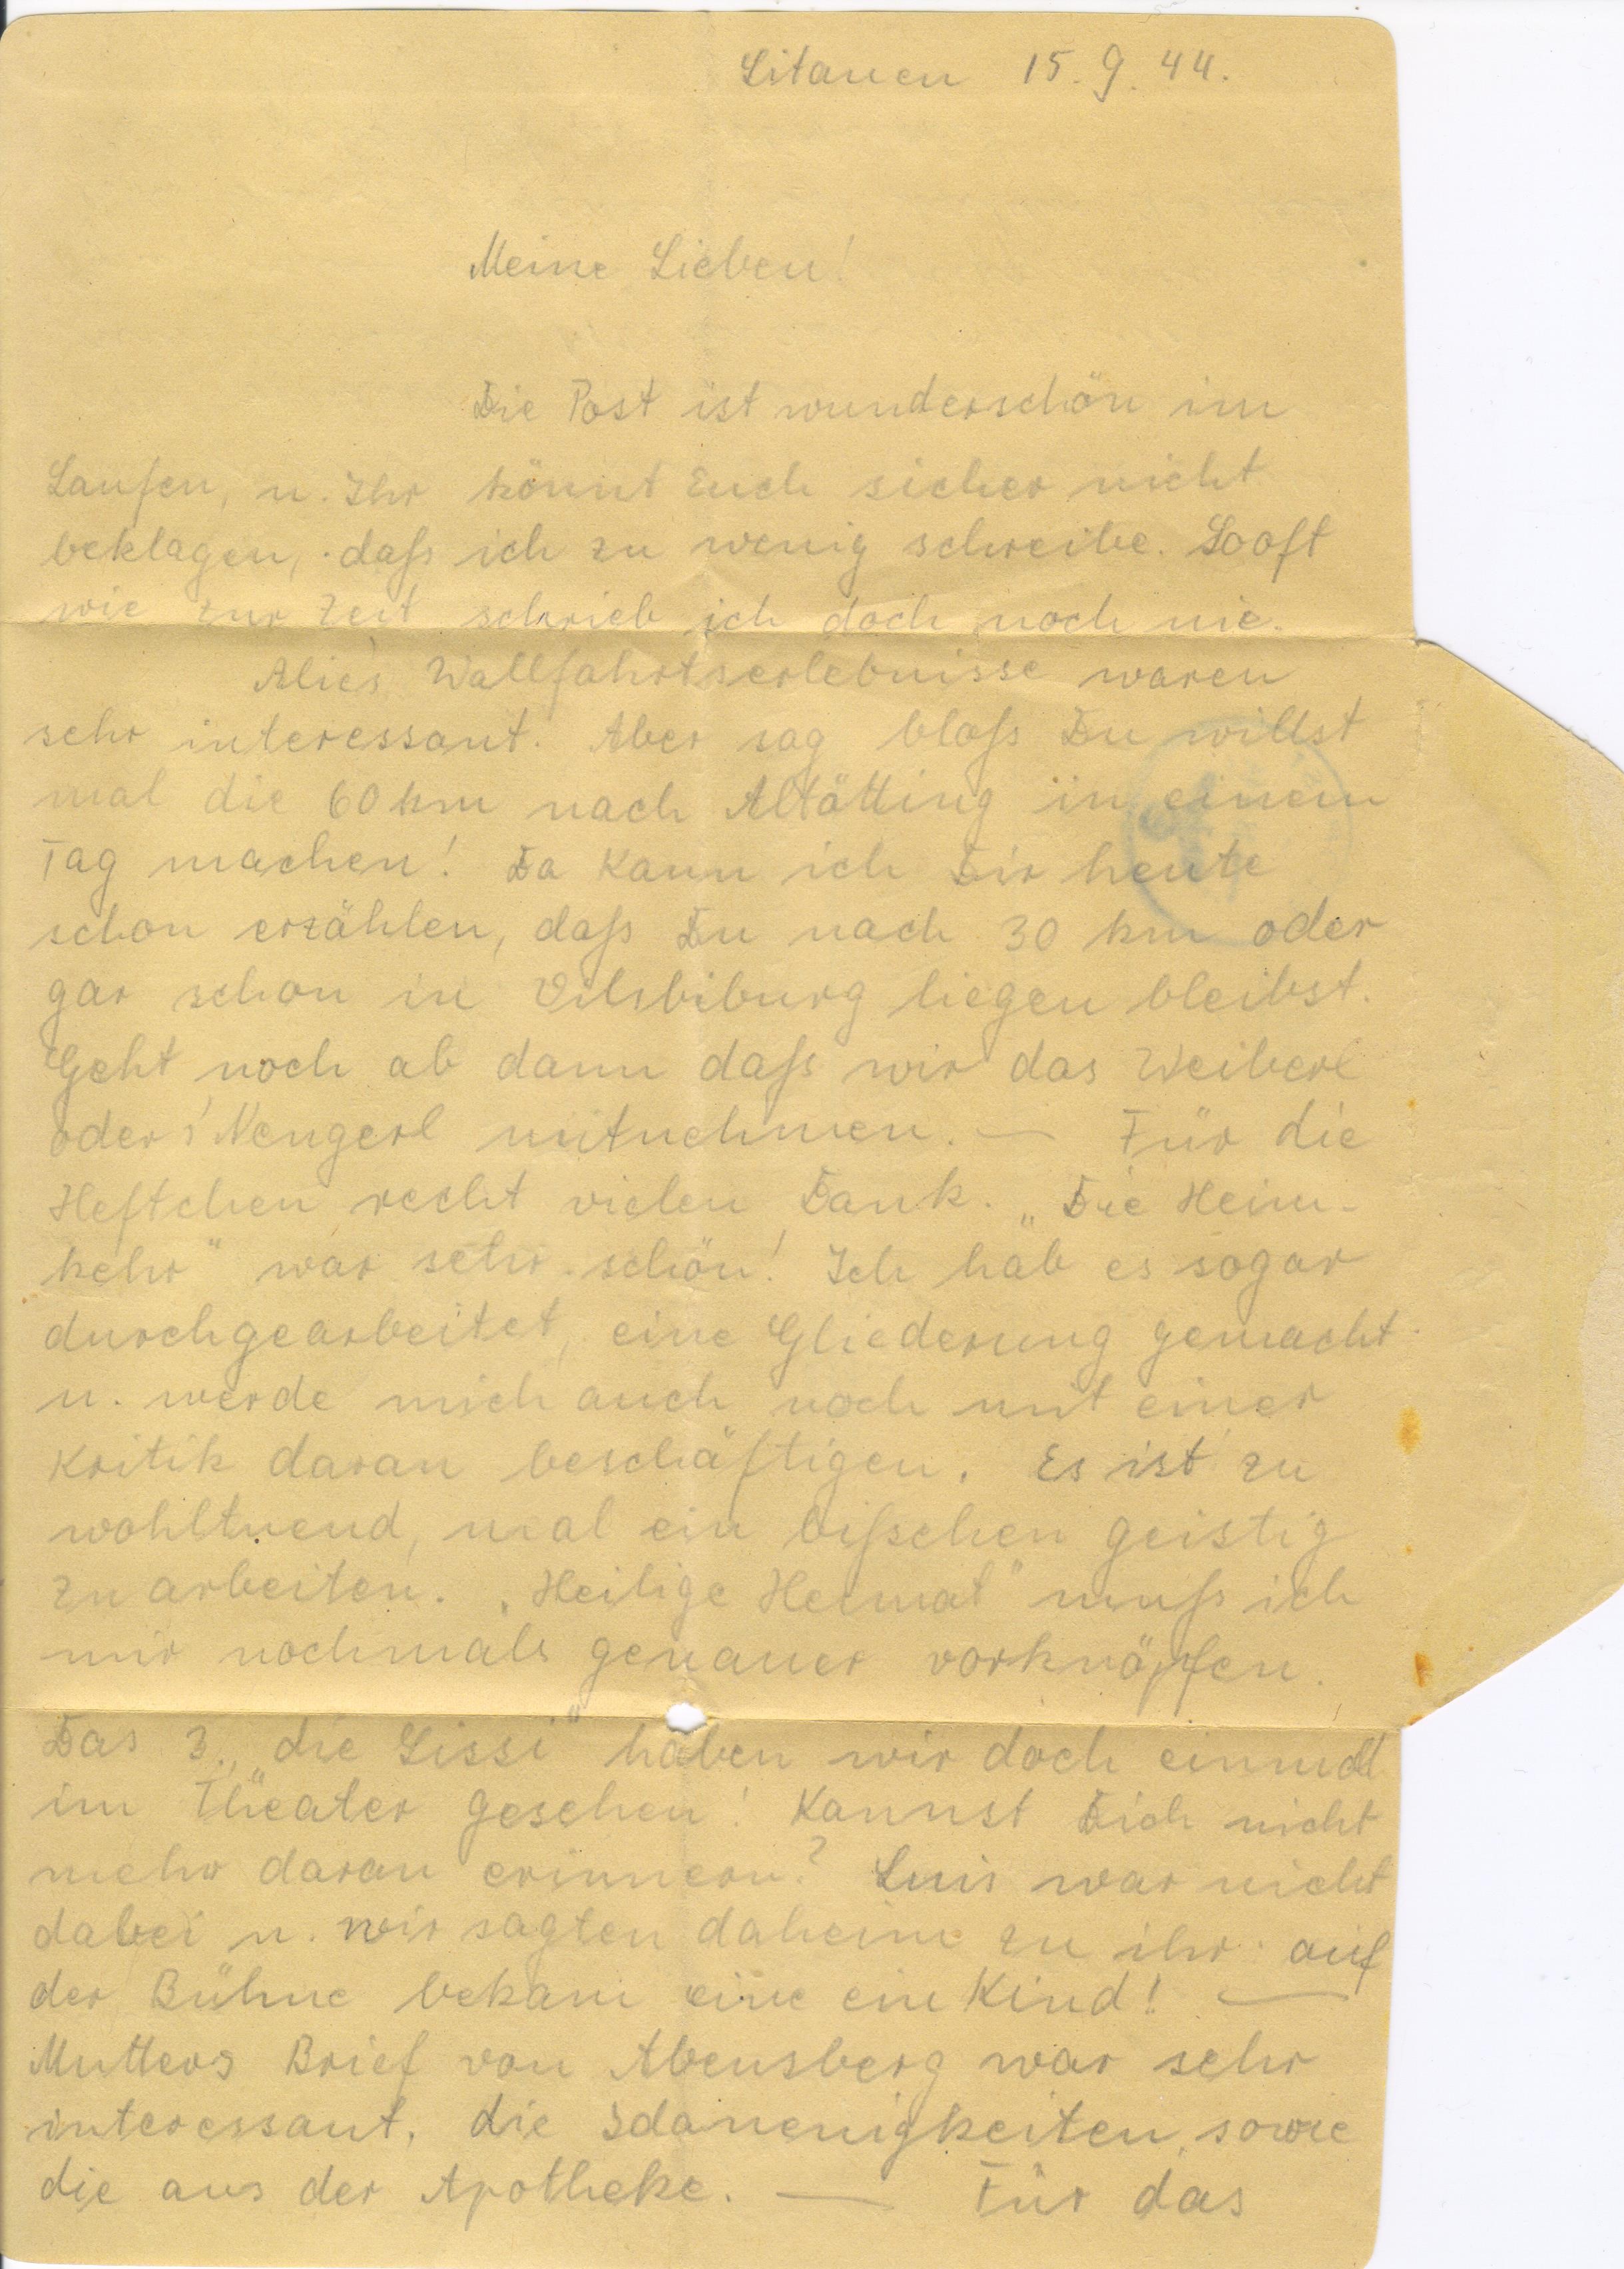 Litauen 15. 9. 44.
Meine Lieben!
Die Post ist wunderschön im
Laufen, u. Ihr könnt Euch sicher nicht
beklagen, daß ich zu wenig schreibe. So oft
wie zur Zeit schrieb ich doch noch nie.
Alies Wallfahrtserlebnisse waren
sehr interessant. Aber sag bloß Du willst
mal die 60 km nach Altötting in einem
Tag machen! Da kann ich Dir heute
schon erzählen, daß Du nach 30 km oder
gar schon in Vilsbiburg liegen bleibst.
Geht noch ab dann daß wir das Weiberl
oder s' Nengerl mitnehmen. — Für die
Heftchen recht vielen Dank. „Die Heim-
kehr" war sehr schön! Ich hab es sogar
durchgearbeitet, eine Gliederung gemacht
u. werde mich auch noch mit einer
Kritik daran beschäftigen. Es ist zu
wohltuend, mal ein bißchen geistig
zu arbeiten. „Heilige Heimat" muß ich
mir nochmals genauer vorknöpfen.
Das 3. „die Lissi" haben wir doch einmal
im Theater gesehen! Kannst Dich nicht
mehr daran erinnern? Luis war nicht
dabei u. wir sagten daheim zu ihr: auf
der Bühne bekam eine ein Kind! —
Mutters Brief von Abensberg war sehr
interessant, die Idaneuigkeiten, sowie
die aus der Apotheke. — Für das